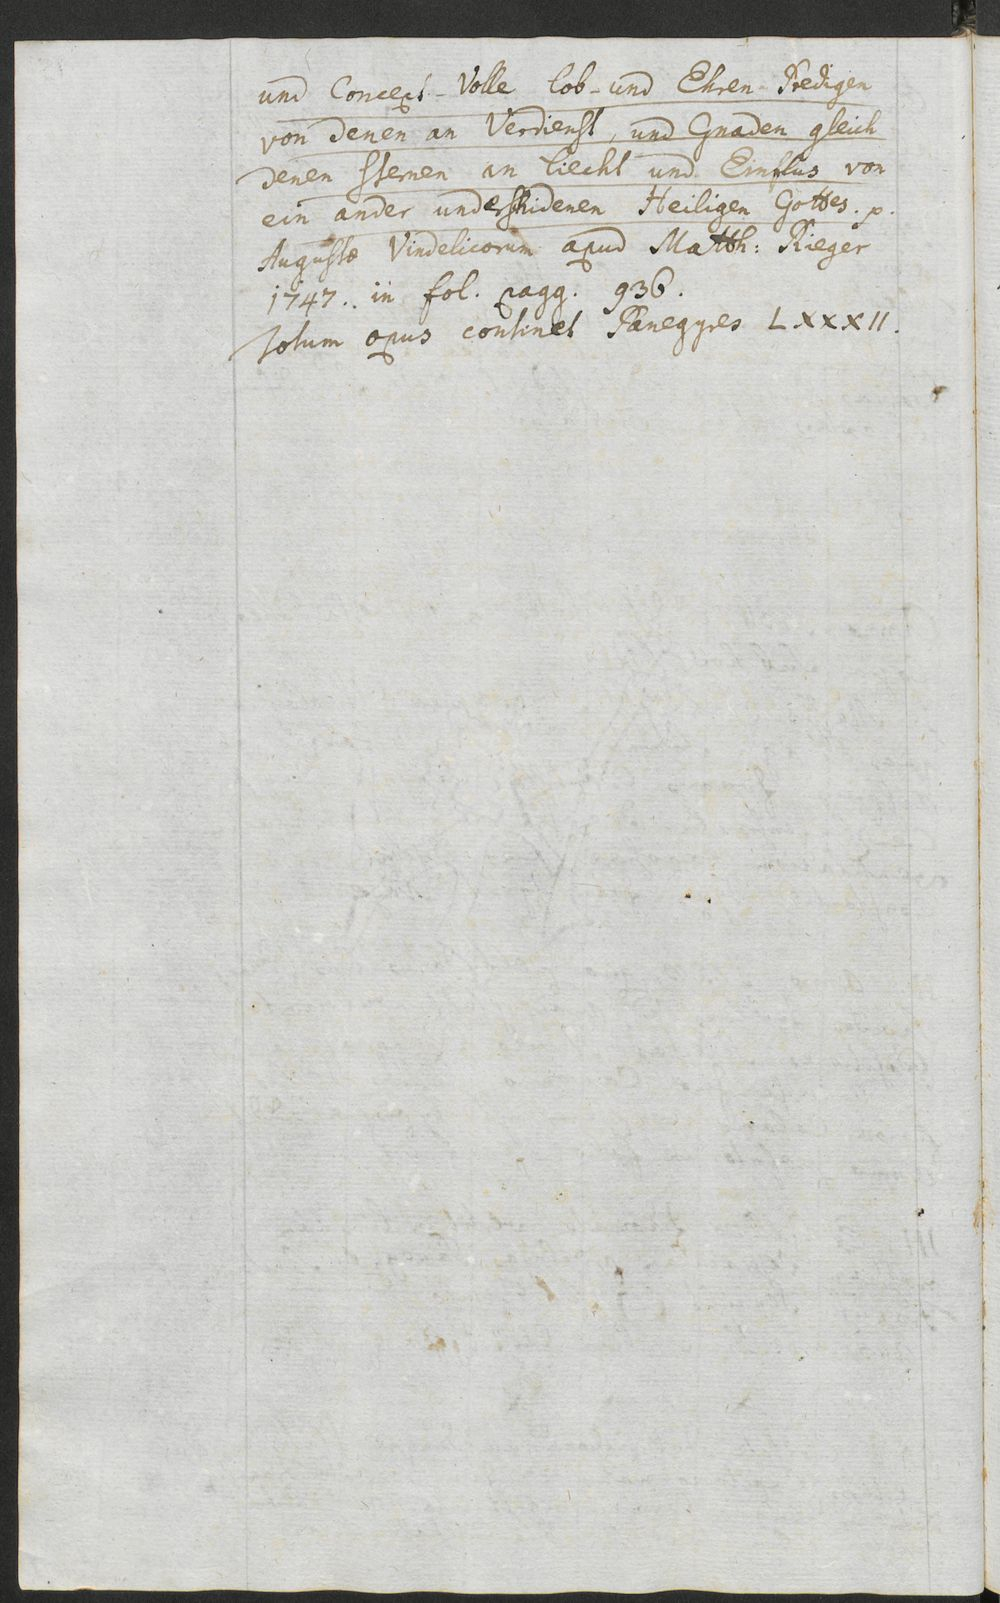 und Concept-Volle Lob- und Ehren-Predigen
von denen an Verdienst, und Gnaden gleich
denen Sternen an Liecht und Einflus von
ein ander underschidenen Heiligen Gottes. p.
Augustæ Vindelicorum apud Matth: Rieger
1747. in fol. pagg. 936.
totum opus continet Panegyres LXXXII.